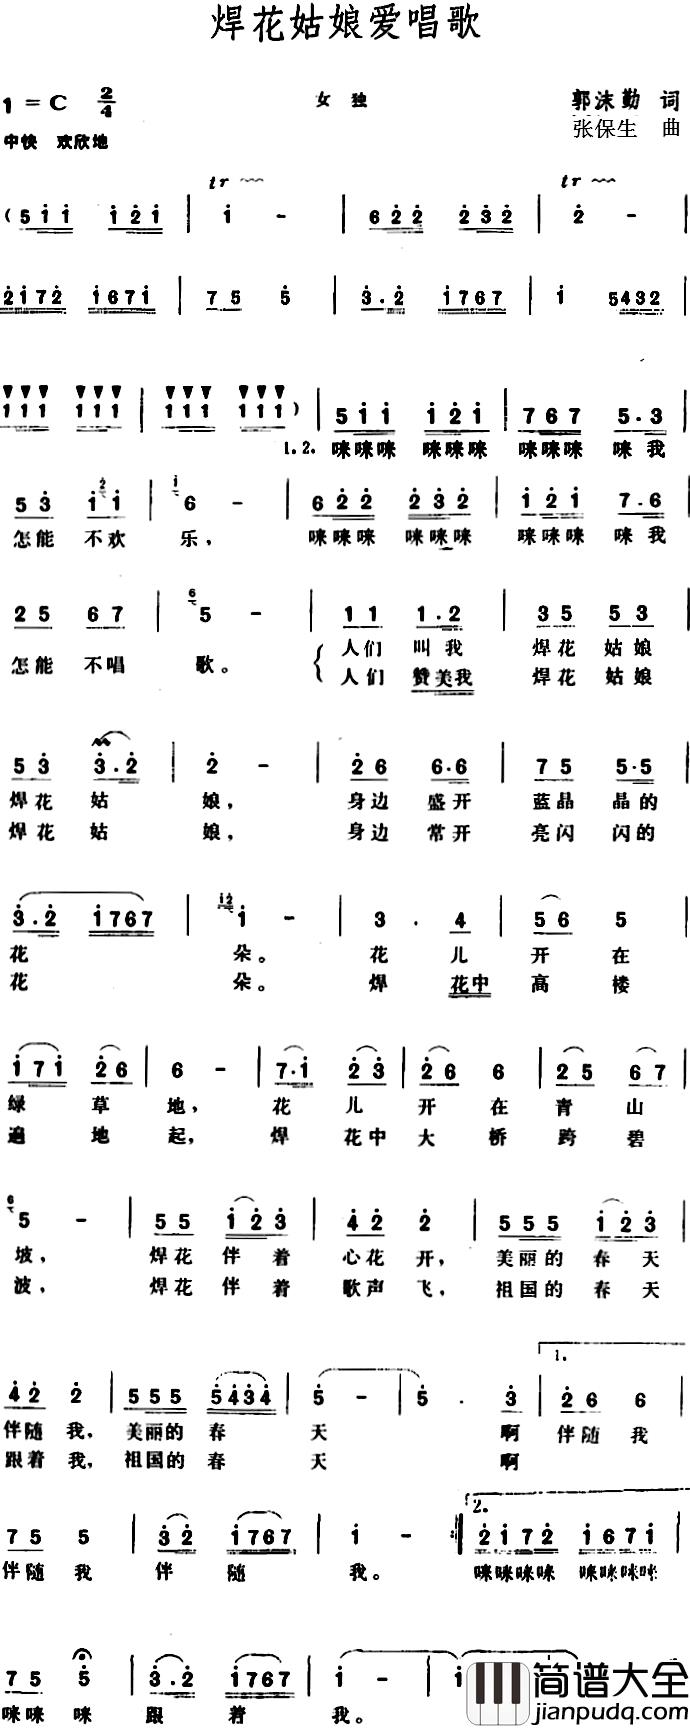 焊花姑娘爱唱歌
1=C 2/4 女独 郭沫勤 词
中快 欢欣地 张保生 曲
tr tr
(5 1 1 1 2 1 | 1 - | 6 2 2 2 3 2 | 2 - |
2172 1671 | 75 5 | 3.2 1767 | 1 5432 |
111 111 | 111 111) | 511 121 | 767 5.3 |
1.2. 咪咪咪 咪咪咪 咪咪咪 咪我
53 11 | 6 - | 622 232 | 121 7.6 |
怎能 不欢 乐, 咪咪咪 咪咪咪 咪咪咪 咪我
25 67 | 5 - | 11 1.2 | 35 53 |
怎能 不唱 歌。 人们 叫我 焊花 姑娘
人们 赞美我 焊花 姑娘
53 3.2 | 2 - | 26 6.6 | 75 5.5 |
焊花 姑 娘, 身边 盛开 蓝晶 晶的
焊花 姑 娘, 身边 常开 亮闪 闪的
3.2 1767 | 1 - | 3 . 4 | 56 5 |
花 朵。 花 儿 开 在
花 朵。 焊 花中 高 楼
171 26 | 6 - | 7.1 23 | 26 6 | 25 67 |
绿 草 地, 花 儿 开 在 青 山
遍 地 起, 焊 花中 大 桥 跨 碧
5 - | 55 123 | 42 2 | 555 123 |
坡, 焊花 伴 着 心花 开, 美丽的 春 天
波, 焊花 伴 着 歌声 飞, 祖国的 春 天
1.
42 2 | 555 53434 | 5 - | 5 . 3 | 26 6 |
伴随 我, 美丽的 春 天 啊 伴随 我
跟着 我, 祖国的 春 天 啊
2.
75 5 | 32 1767 | 1 - :| 2172 1671 |
伴随 我 伴 随 我。 咪咪咪咪 咪咪咪咪
75 5 | 3.2 1767 | 1 - | 1
咪咪 咪 跟 着 我。
简谱大全
jianpudq.com